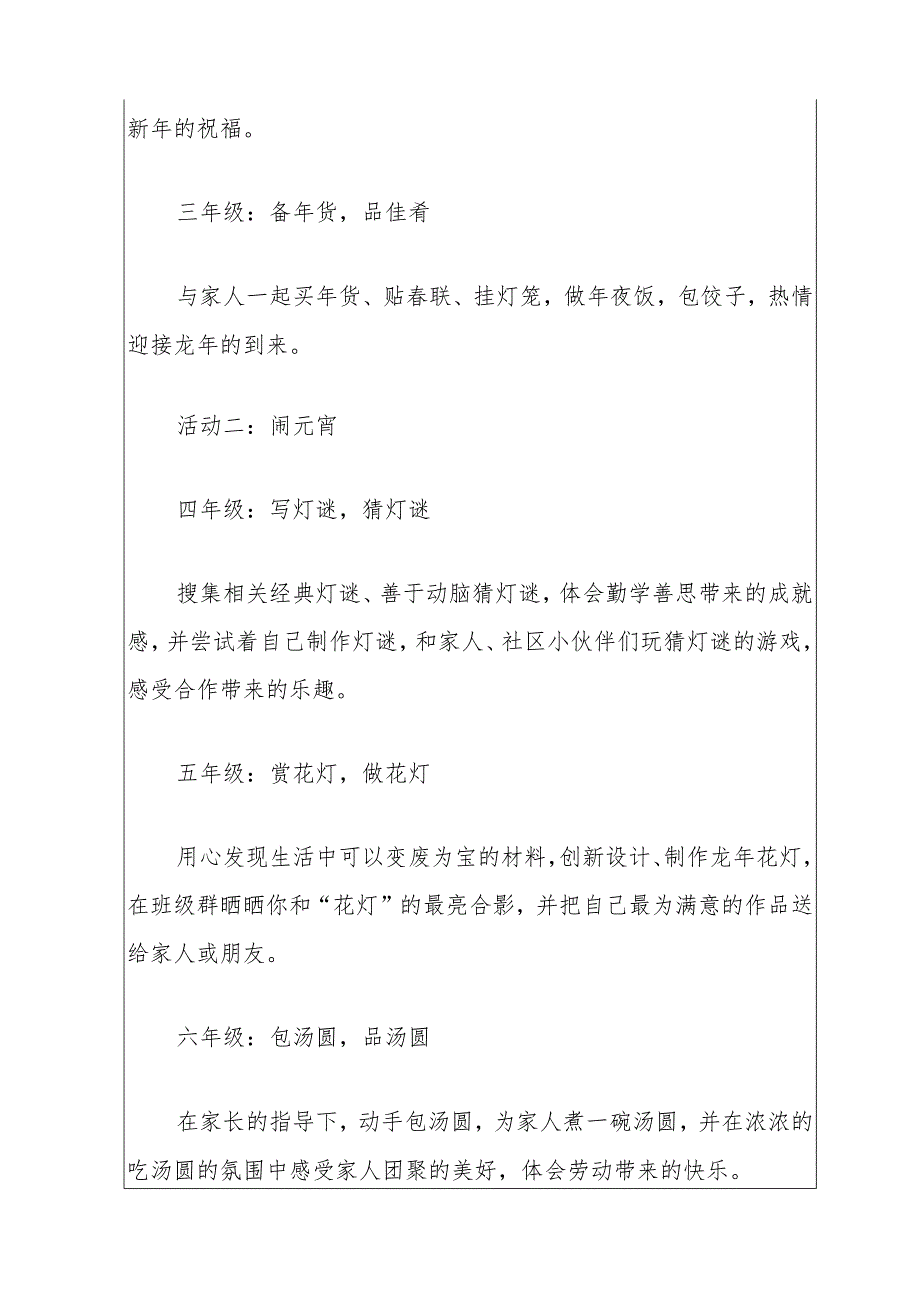 新年的祝福。
三年级：备年货，品佳肴
与家人一起买年货、贴春联、挂灯笼，做年夜饭，包饺子，热情
迎接龙年的到来。
活动二：闹元宵
四年级：写灯谜，猜灯谜
搜集相关经典灯谜、善于动脑猜灯谜，体会勤学善思带来的成就
感，并尝试着自己制作灯谜，和家人、社区小伙伴们玩猜灯谜的游戏，
感受合作带来的乐趣。
五年级：赏花灯，做花灯
用心发现生活中可以变废为宝的材料，创新设计、制作龙年花灯，
在班级群晒晒你和“花灯”的最亮合影，并把自己最为满意的作品送
给家人或朋友。
六年级：包汤圆，品汤圆
在家长的指导下，动手包汤圆，为家人煮一碗汤圆，并在浓浓的
吃汤圆的氛围中感受家人团聚的美好，体会劳动带来的快乐。